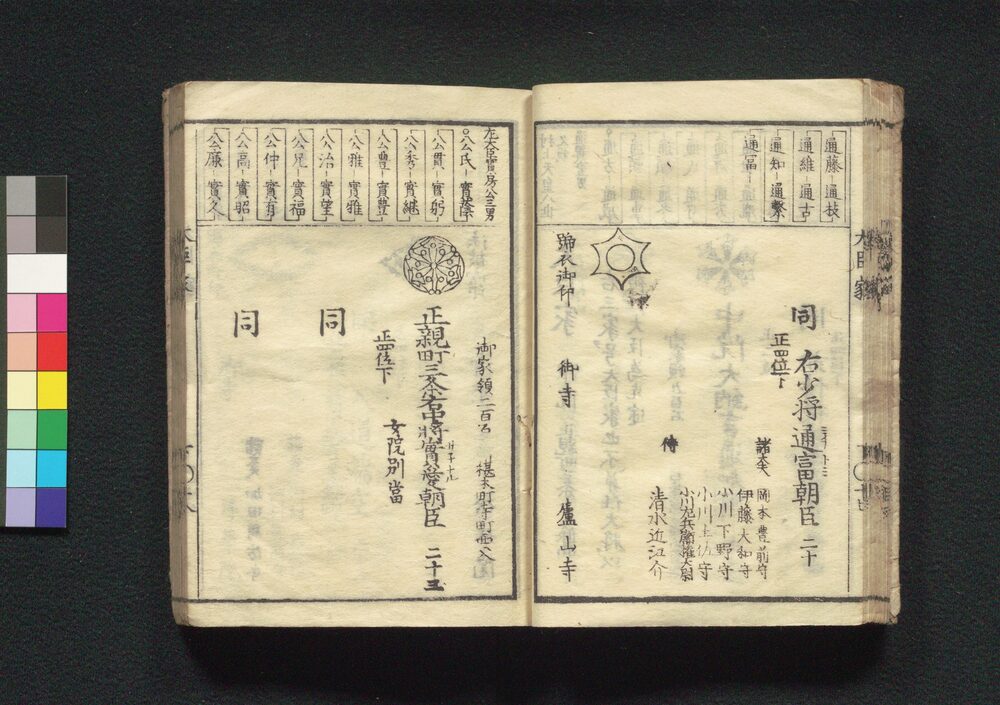 通藤 通枝
通維 通古
通知 通繁
通冨
大臣家
同 右少将通富朝臣 二十
正四位下
諸大夫
岡本豊前守
伊藤大和守
小川下野守
小川土佐守
小川左兵衛権大尉
侍
清水近江介
御寺 廬山寺
左大臣實房公三男
公氏 實蔭
公貫 實躬
公秀 實継
公豊 實豊
公雅 實雅
公治 實望
公兄 實福
公仲 實有
公高 實昭
公廉 實久
御家領二百石 椹木町寺町西入
正親町三条右中将實愛朝臣 二十三
正四位下
女院別當
同
同